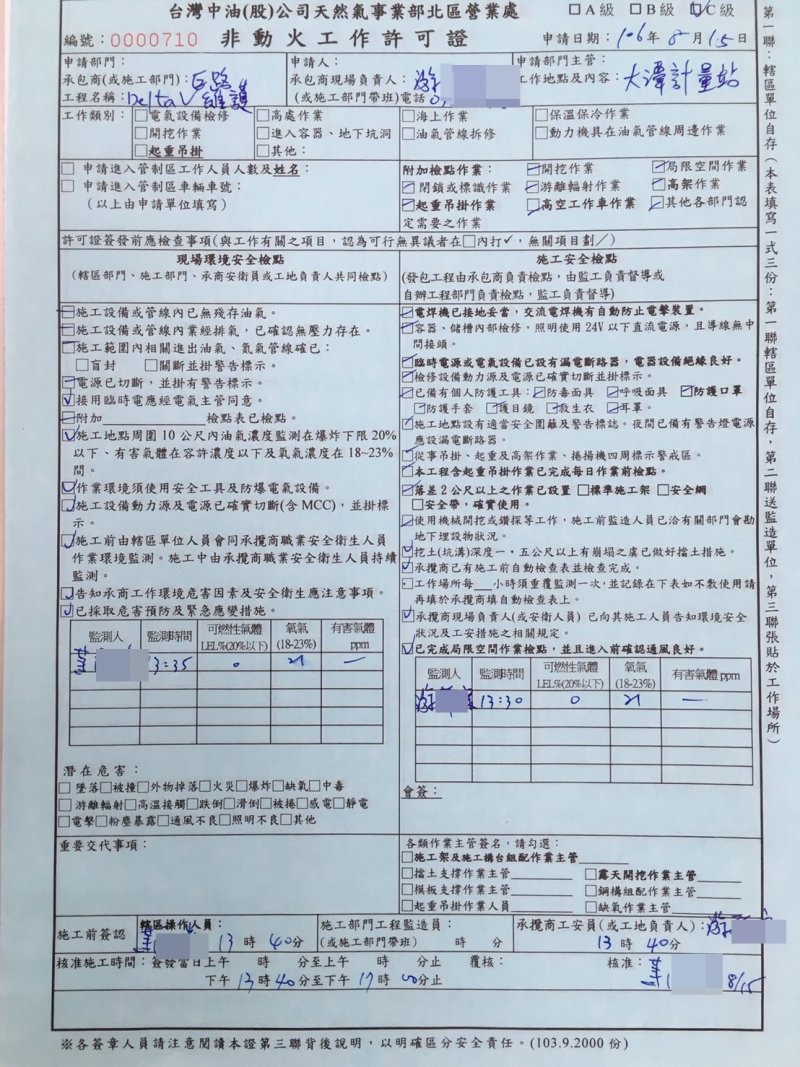 台灣中油(股)公司天然氣事業部北區營業處 □A級 □B級 ☑C級
編號：0000710 非動火工作許可證 申請日期：106年8月15日
申請部門： 申請人： 申請部門主管：
承包商(或施工部門)：巨路 承包商現場負責人：游 工作地點及內容：大潭計量站
工程名稱：Delta V 維護 (或施工部門帶班)電話
工作類別：□電氣設備檢修 □高處作業 □海上作業 □保溫保冷作業
□開挖作業 □進入容器、地下坑洞 □油氣管線拆修 □動力機具在油氣管線周邊作業
□起重吊掛 □其他：
□申請進入管制區工作人員人數及姓名：
□申請進入管制區車輛車號：
(以上由申請單位填寫)
附加檢點作業：開挖作業 局限空間作業
閉鎖或標識作業 游離輻射作業 高架作業
起重吊掛作業 高空工作車作業 其他各部門認
定需要之作業
許可證簽發前應檢查事項(與工作有關之項目，認為可行無異議者在□內打✓，無關項目劃／)
現場環境安全檢點
(轄區部門、施工部門、承商安衛員或工地負責人共同檢點)
施工設備或管線內已無殘存油氣。
施工設備或管線內業經排氣，已確認無壓力存在。
施工範圍內相關進出油氣、氮氣管線確已：
□盲封 □關斷並掛警告標示。
電源已切斷，並掛有警告標示。
☑接用臨時電應經電氣主管同意。
附加 檢點表已檢點。
☑施工地點周圍10公尺內油氣濃度監測在爆炸下限20%
以下、有害氣體在容許濃度以下及氧氣濃度在18~23%
間。
☑作業環境須使用安全工具及防爆電氣設備。
☑施工設備動力源及電源已確實切斷(含MCC)，並掛標
示。
☑施工前由轄區單位人員會同承攬商職業安全衛生人員
作業環境監測。施工中由承攬商職業安全衛生人員持續
監測。
☑告知承商工作環境危害因素及安全衛生應注意事項。
☑已採取危害預防及緊急應變措施。
監測人 監測時間 可燃性氣體 LEL%(20%以下) 氧氣 (18-23%) 有害氣體 ppm
13:35 0 21 —
潛在危害：
□墜落□被撞□外物掉落□火災□爆炸□缺氧□中毒
□游離輻射□高溫接觸□跌倒□滑倒□被捲□感電□靜電
□電擊□粉塵暴露□通風不良□照明不良□其他
重要交代事項：
施工安全檢點
(發包工程由承包商負責檢點，由監工負責督導或
自辦工程部門負責檢點，監工負責督導)
電焊機已接地妥當，交流電焊機有自動防止電擊裝置。
容器、儲槽內部檢修，照明使用24V以下直流電源，且導線無中
間接頭。
臨時電源或電氣設備已設有漏電斷路器，電器設備絕緣良好。
檢修設備動力源及電源已確實切斷並掛標示。
已備有個人防護工具：防毒面具 呼吸面具 防護口罩
防護手套 護目鏡 救生衣 耳罩。
施工地點設有適當安全圍籬及警告標誌。夜間已備有警燈電源
應設漏電斷路器。
從事吊掛、起重及高架作業、捲揚機四周標示警戒區。
本工程含起重吊掛作業已完成每日作業前檢點。
落差2公尺以上之作業已設置 □標準施工架 □安全網
□安全帶，確實使用。
使用機械開挖或鑽探等工作，施工前監造人員已洽有關部門會勘
地下埋設物狀況。
挖土(坑溝)深度一．五公尺以上有崩塌之虞已做好擋土措施。
☑承攬商已有施工前自動檢查表並檢查完成。
□工作場所每 小時須重覆監測一次，並記錄在下表如不敷使用請
再填於承攬商填自動檢查表上。
☑承攬商現場負責人(或安衛人員) 已向其施工人員告知環境安全
狀況及工安措施之相關規定。
☑已完成局限空間作業檢點，並且進入前確認通風良好。
監測人 監測時間 可燃性氣體 LEL%(20%以下) 氧氣 (18-23%) 有害氣體 ppm
游 13:30 0 21 —
會簽：
各類作業主管簽名，請勾選：
□施工架及施工構台組配作業主管
□擋土支撐作業主管 □露天開挖作業主管
□模板支撐作業主管 □鋼構組配作業主管
□起重吊掛作業人員 □缺氧作業主管
施工前簽認 轄區操作人員： 13時40分
施工部門工程監造員：
(或施工部門帶班) 時 分
承攬商工安員(或工地負責人)：游
13時40分
核准施工時間：簽發當日上午 時 分至上午 時 分止 覆核： 核准：
下午13時40分至下午17時00分止 8/15
※各簽章人員請注意閱讀本證第三聯背後說明，以明確區分安全責任。(103.9.2000份)
第一聯：轄區單位自存（本表填寫一式三份：第一聯轄區單位自存，第二聯送監造單位，第三聯張貼於工作場所）